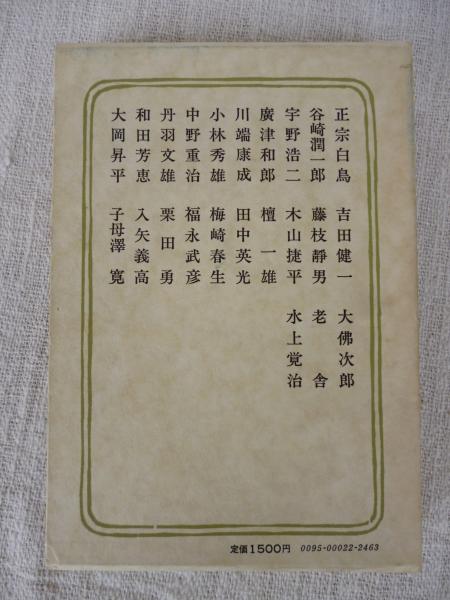 正宗白鳥
谷崎潤一郎
宇野浩二
廣津和郎
川端康成
小林秀雄
中野重治
丹羽文雄
和田芳恵
大岡昇平
吉田健一
藤枝靜男
木山捷平
檀一雄
田中英光
梅崎春生
福永武彦
栗田勇
入矢義高
子母澤寛
大佛次郎
老舎
水上覚治
定価1500円 0095-00022-2463